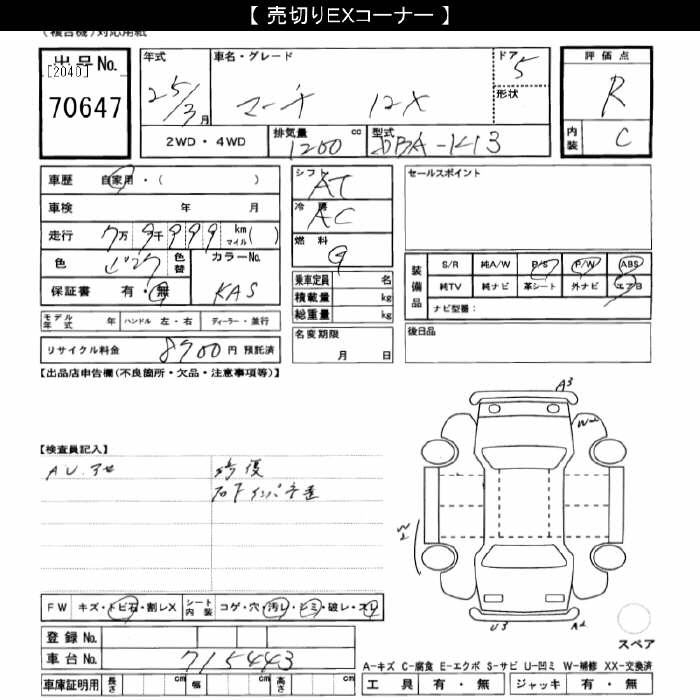 【 売切りEXコーナー 】
(複合機)対応用紙
出品No.
[2040]
70647
年式
25/3月
車名・グレード
マーチ 12X
ドア 5
形状
評価点
R
内装 C
2WD・4WD
排気量 1200 cc
型式 DBA-K13
車歴 自家用・( )
車検 年 月
走行 7万9千999 km マイル( )
色
色替
カラーNo.
KAS
保証書 有・無
モデル年式 年 ハンドル 左・右 ディーラー・並行
リサイクル料金 8900円 預託済
シフト AT
冷房 AC
燃料 G
乗車定員 名
積載量 kg
総重量 kg
名変期限
月 日
セールスポイント
装備品
S/R 純A/W P/S P/W ABS
純TV 純ナビ 革シート 外ナビ エアB
ナビ型番:
後日品
【出品店申告欄(不良箇所・欠品・注意事項等)】
【検査員記入】
修復
A3
W2
U3
A2
スペア
FW キズ・トビ石・割レX シート内装 コゲ・穴・汚レ・シミ・破レ・スレ
登録No.
車台No. 715443
車庫証明用 長さ cm 幅 cm 高さ cm
A-キズ C-腐食 E-エクボ S-サビ U-凹ミ W-補修 XX-交換済
工具 有・無 ジャッキ 有・無